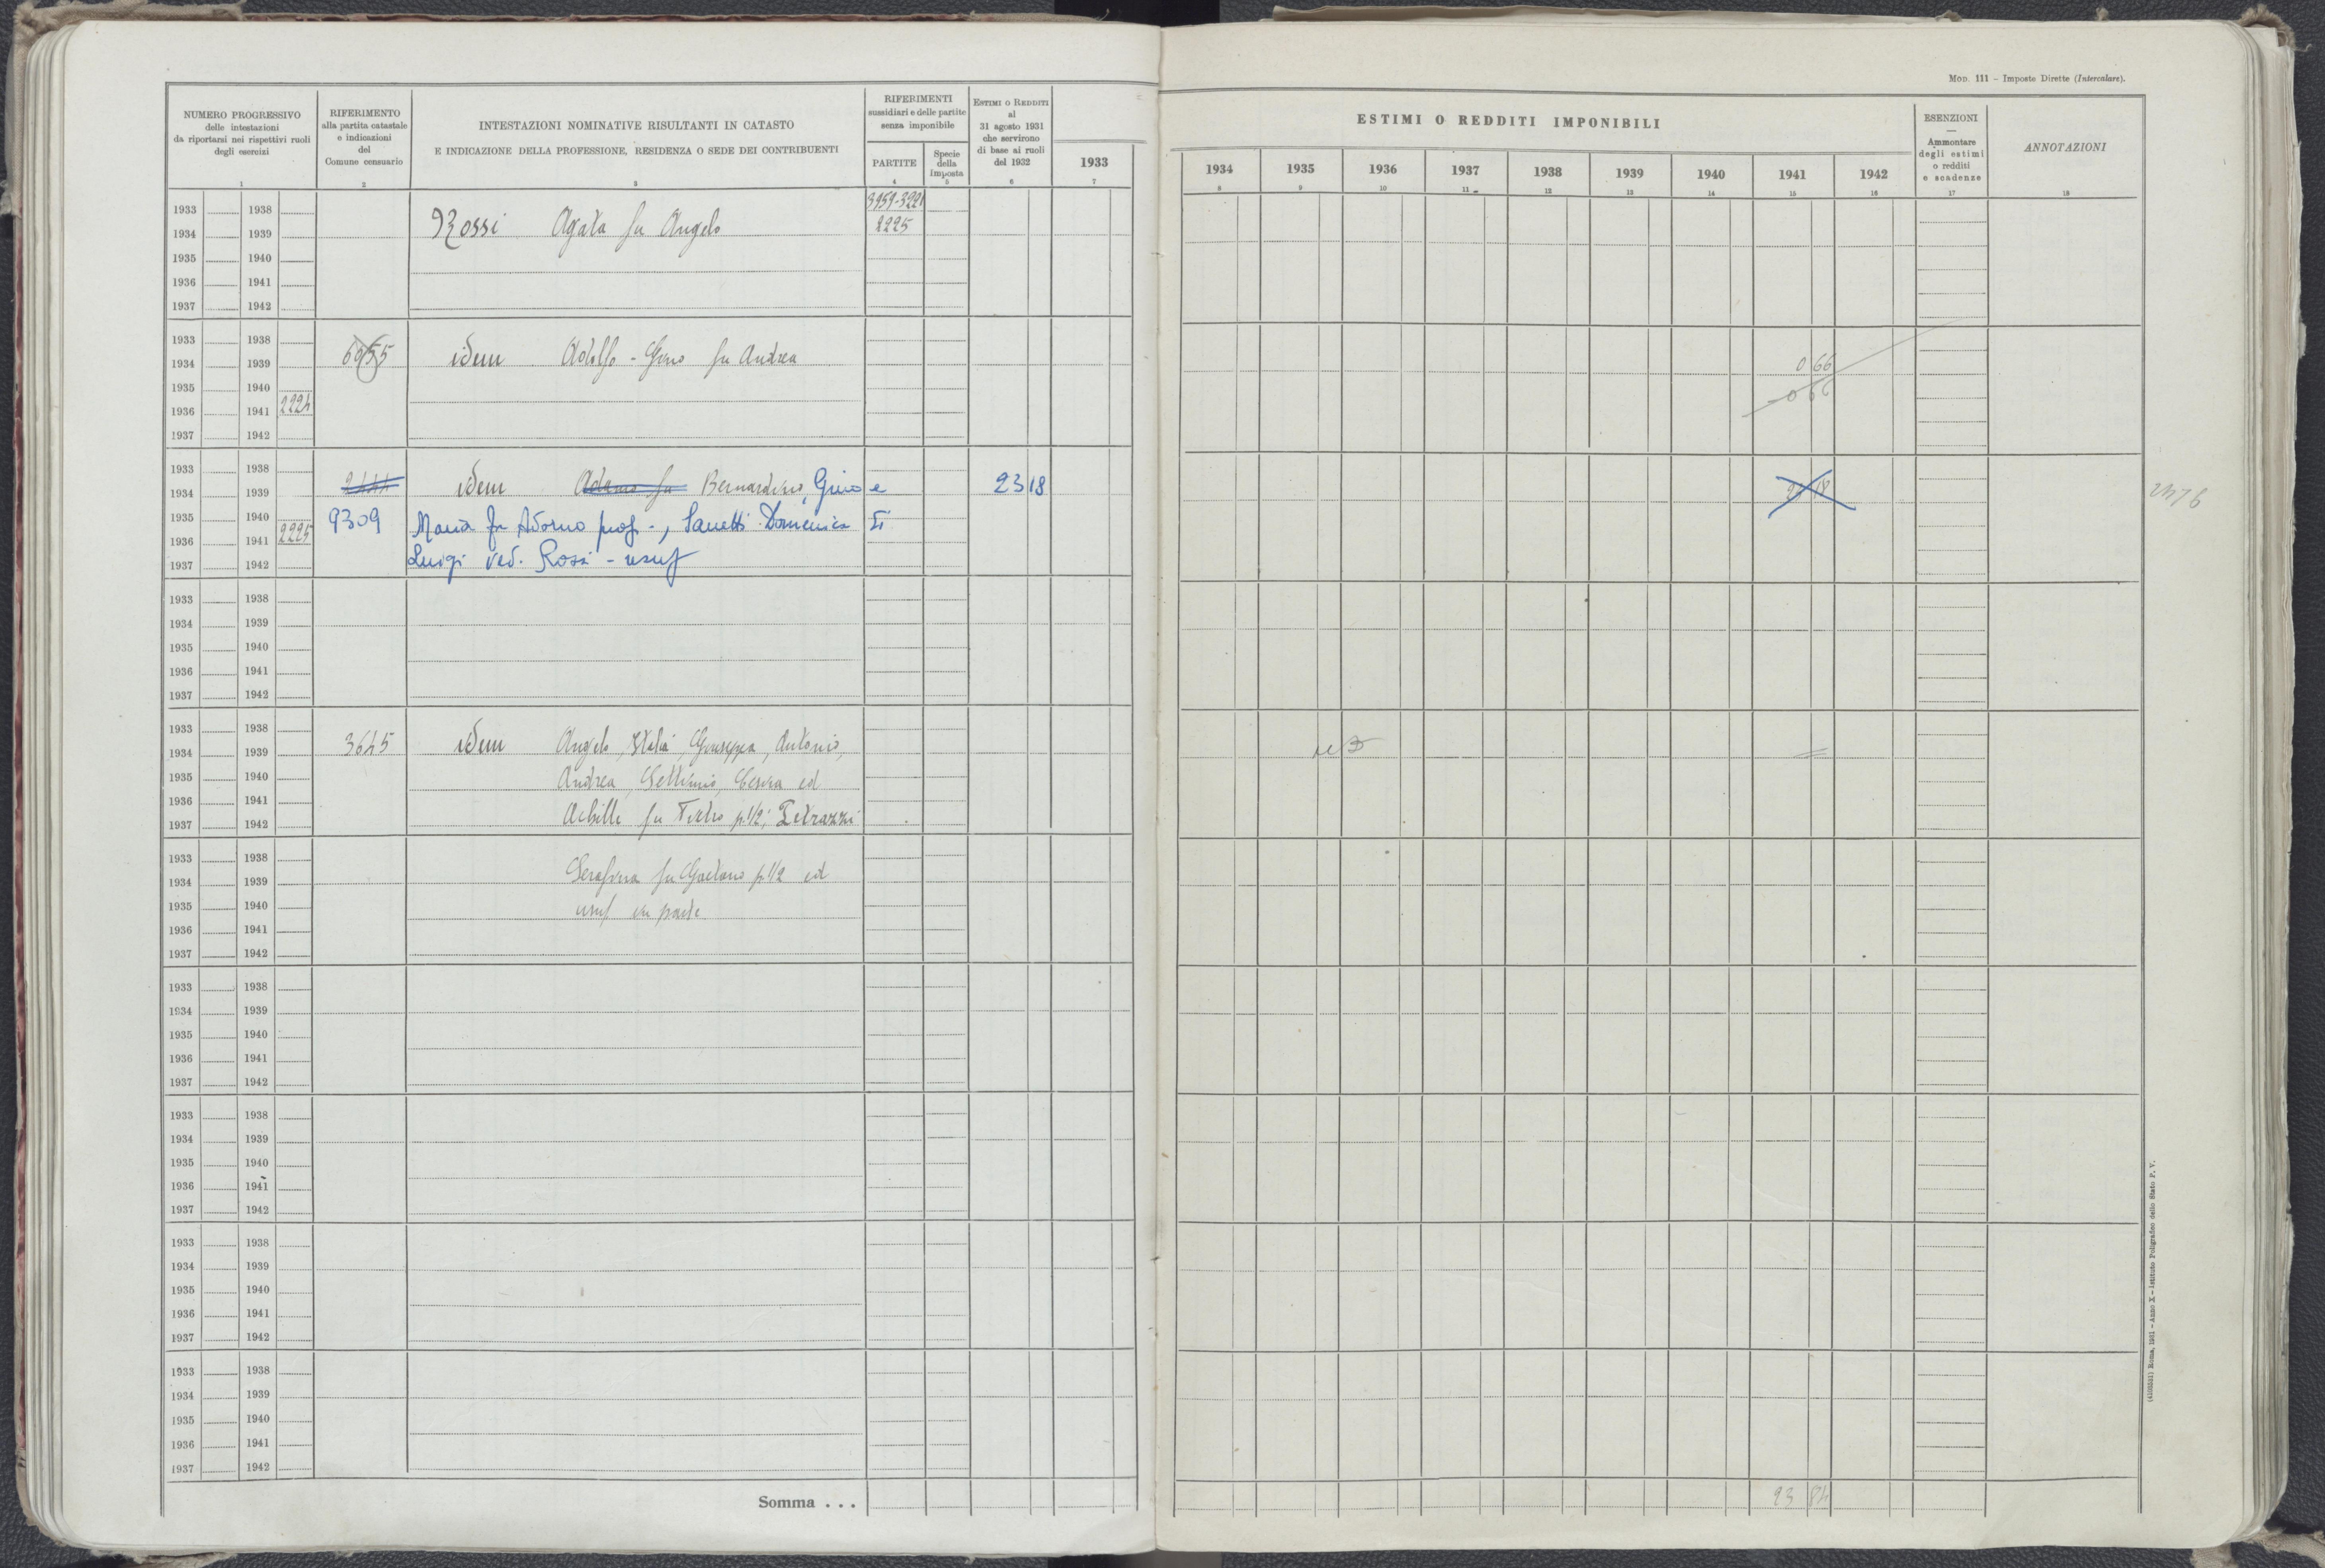 Mod. 111 - Imposte Dirette (Intercalare).
NUMERO PROGRESSIVO
delle intestazioni
da riportarsi nei rispettivi ruoli
degli esercizi
1
RIFERIMENTO
alla partita catastale
e indicazioni
del
Comune censuario
2
INTESTAZIONI NOMINATIVE RISULTANTI IN CATASTO
E INDICAZIONE DELLA PROFESSIONE, RESIDENZA O SEDE DEI CONTRIBUENTI
3
RIFERIMENTI
sussidiari e delle partite
senza imponibile
PARTITE
4
Specie
della
Imposta
5
Estimi o Redditi
al
31 agosto 1931
che servirono
di base ai ruoli
del 1932
6
1933
7
ESTIMI O REDDITI IMPONIBILI
1934 1935 1936 1937 1938 1939 1940 1941 1942
8 9 10 11 12 13 14 15 16
ESENZIONI
—
Ammontare
degli estimi
o redditi
e scadenze
17
ANNOTAZIONI
18
1933 1938 3959-3221
1934 1939 Rossi Agata fu Angelo 2225
1935 1940
1936 1941
1937 1942
1933 1938
1934 1939 6955 idem Adolfo - Gino fu Andrea 0 66
1935 1940 - 0 66
1936 1941 2224
1937 1942
1933 1938
1934 1939 2444 idem Adamo fu Bernardino, Gino e 23 18 23 18
1935 1940 9309 Maria fu Adorno prop -, Sanetti Domenica
1936 1941 2225
1937 1942 Luigi ved. Rossi - usuf
1933 1938
1934 1939
1935 1940
1936 1941
1937 1942
1933 1938
1934 1939 3645 idem Angelo, Italia, Giuseppa, Antonio,
1935 1940 Andrea, Settimio, Cesira ed
1936 1941
1937 1942 Achille fu Pietro p. 1/2; Petrazzi
1933 1938
1934 1939 Serafina fu Gaetano p 1/2 ed
1935 1940 usuf in parte
1936 1941
1937 1942
1933 1938
1934 1939
1935 1940
1936 1941
1937 1942
1933 1938
1934 1939
1935 1940
1936 1941
1937 1942
1933 1938
1934 1939
1935 1940
1936 1941
1937 1942
1933 1938
1934 1939
1935 1940
1936 1941
1937 1942
Somma . . . 23 84
(4103551) Roma, 1931 - Anno X - Istituto Poligrafico dello Stato P. V.